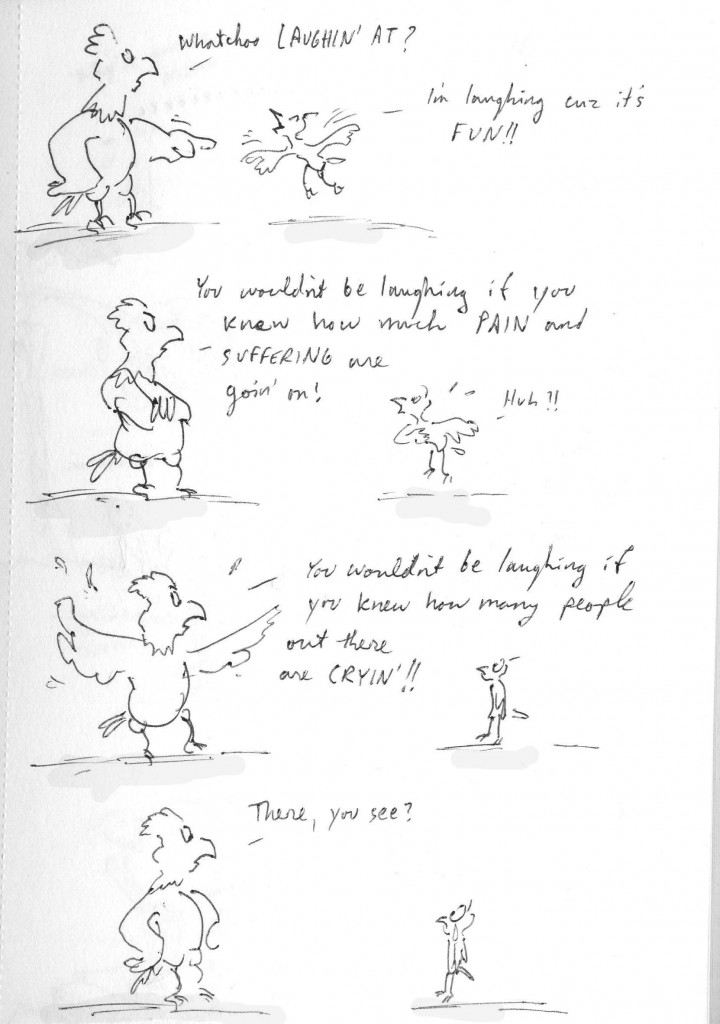 Whatchoo LAUGHIN' AT?
I'm laughing cuz it's
FUN!!
You wouldn't be laughing if you
knew how much PAIN and
SUFFERING are
goin' on!
Huh?!
You wouldn't be laughing if
you knew how many people
out there
are CRYIN'!!
There, you see?